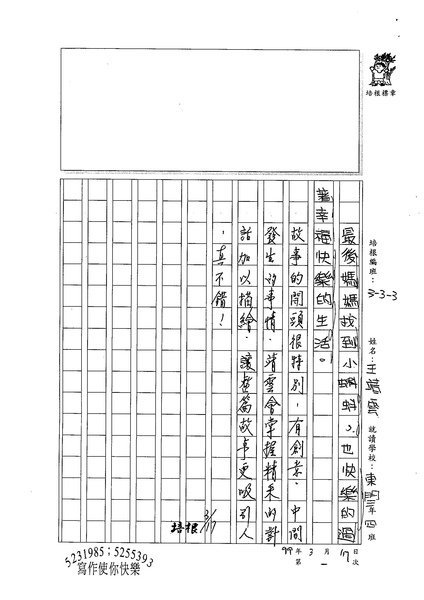 培根標章
培根編班：3-3-3 姓名：王靖雲 就讀學校：東門三年四班
99年3月17日
第一次
最後媽媽找到小蝌蚪，也快樂的過
著幸福快樂的生活。
故事的開頭很特別，有創意，中間
發生的事情，靖雲會掌握精采的對
話加以描繪，讓整篇故事更吸引人
，真不錯！
培根 3/17
5231985；5255393
寫作使你快樂